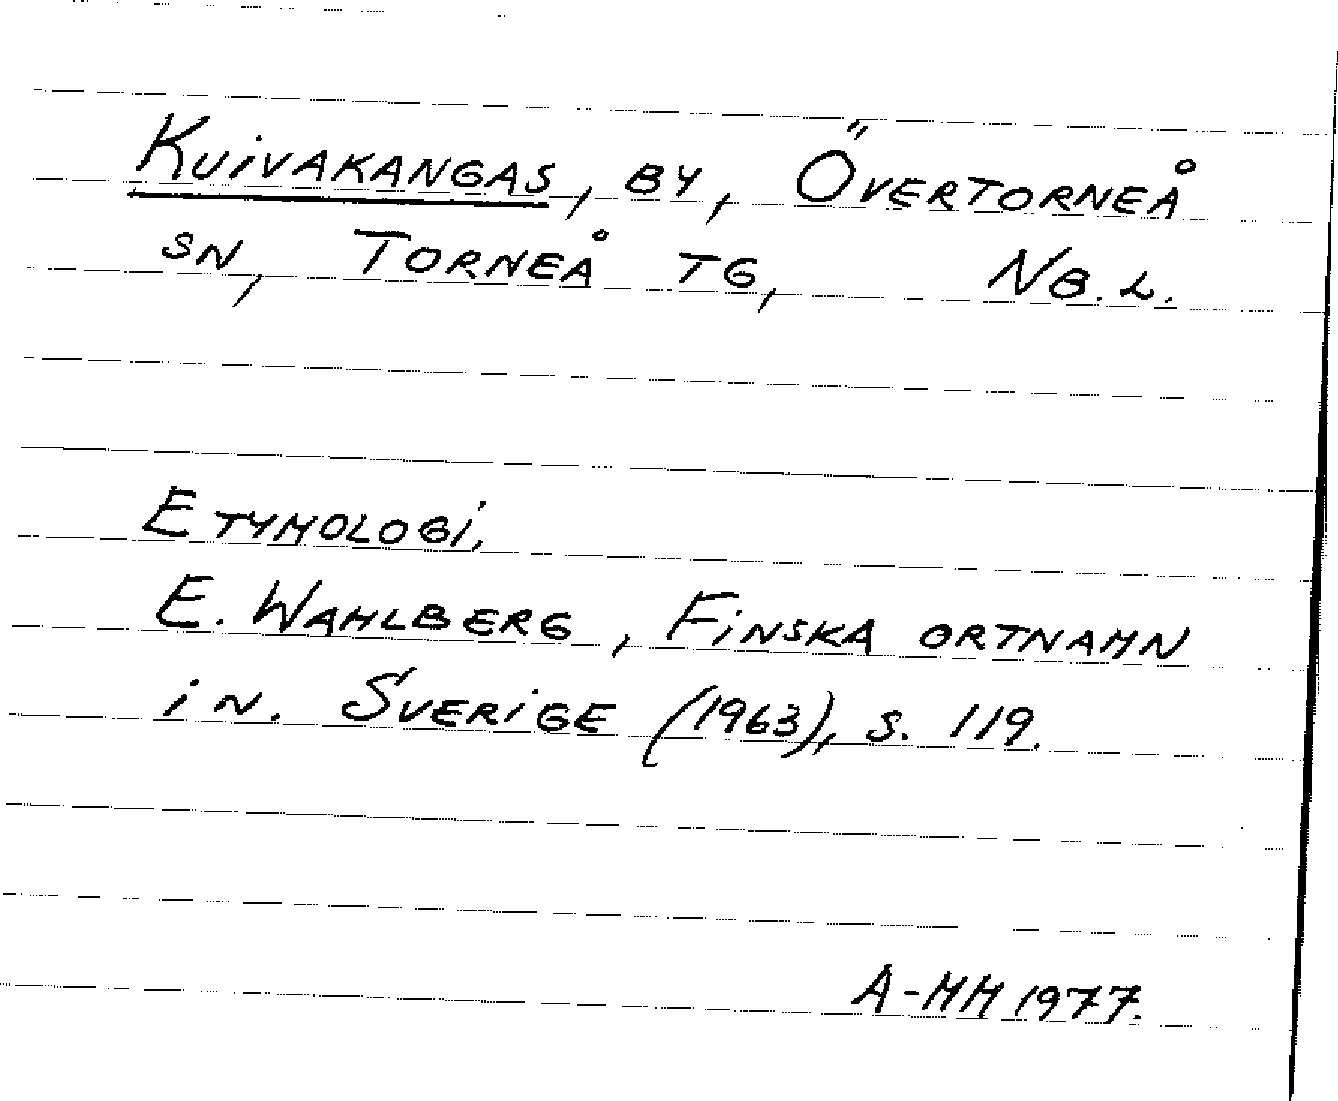 Kuivakangas, by, Övertorneå
sn, Torneå tg, Nb. l.
Etymologi,
E. Wahlberg, Finska ortnamn
i n. Sverige (1963), s. 119.
A-MM 1977.